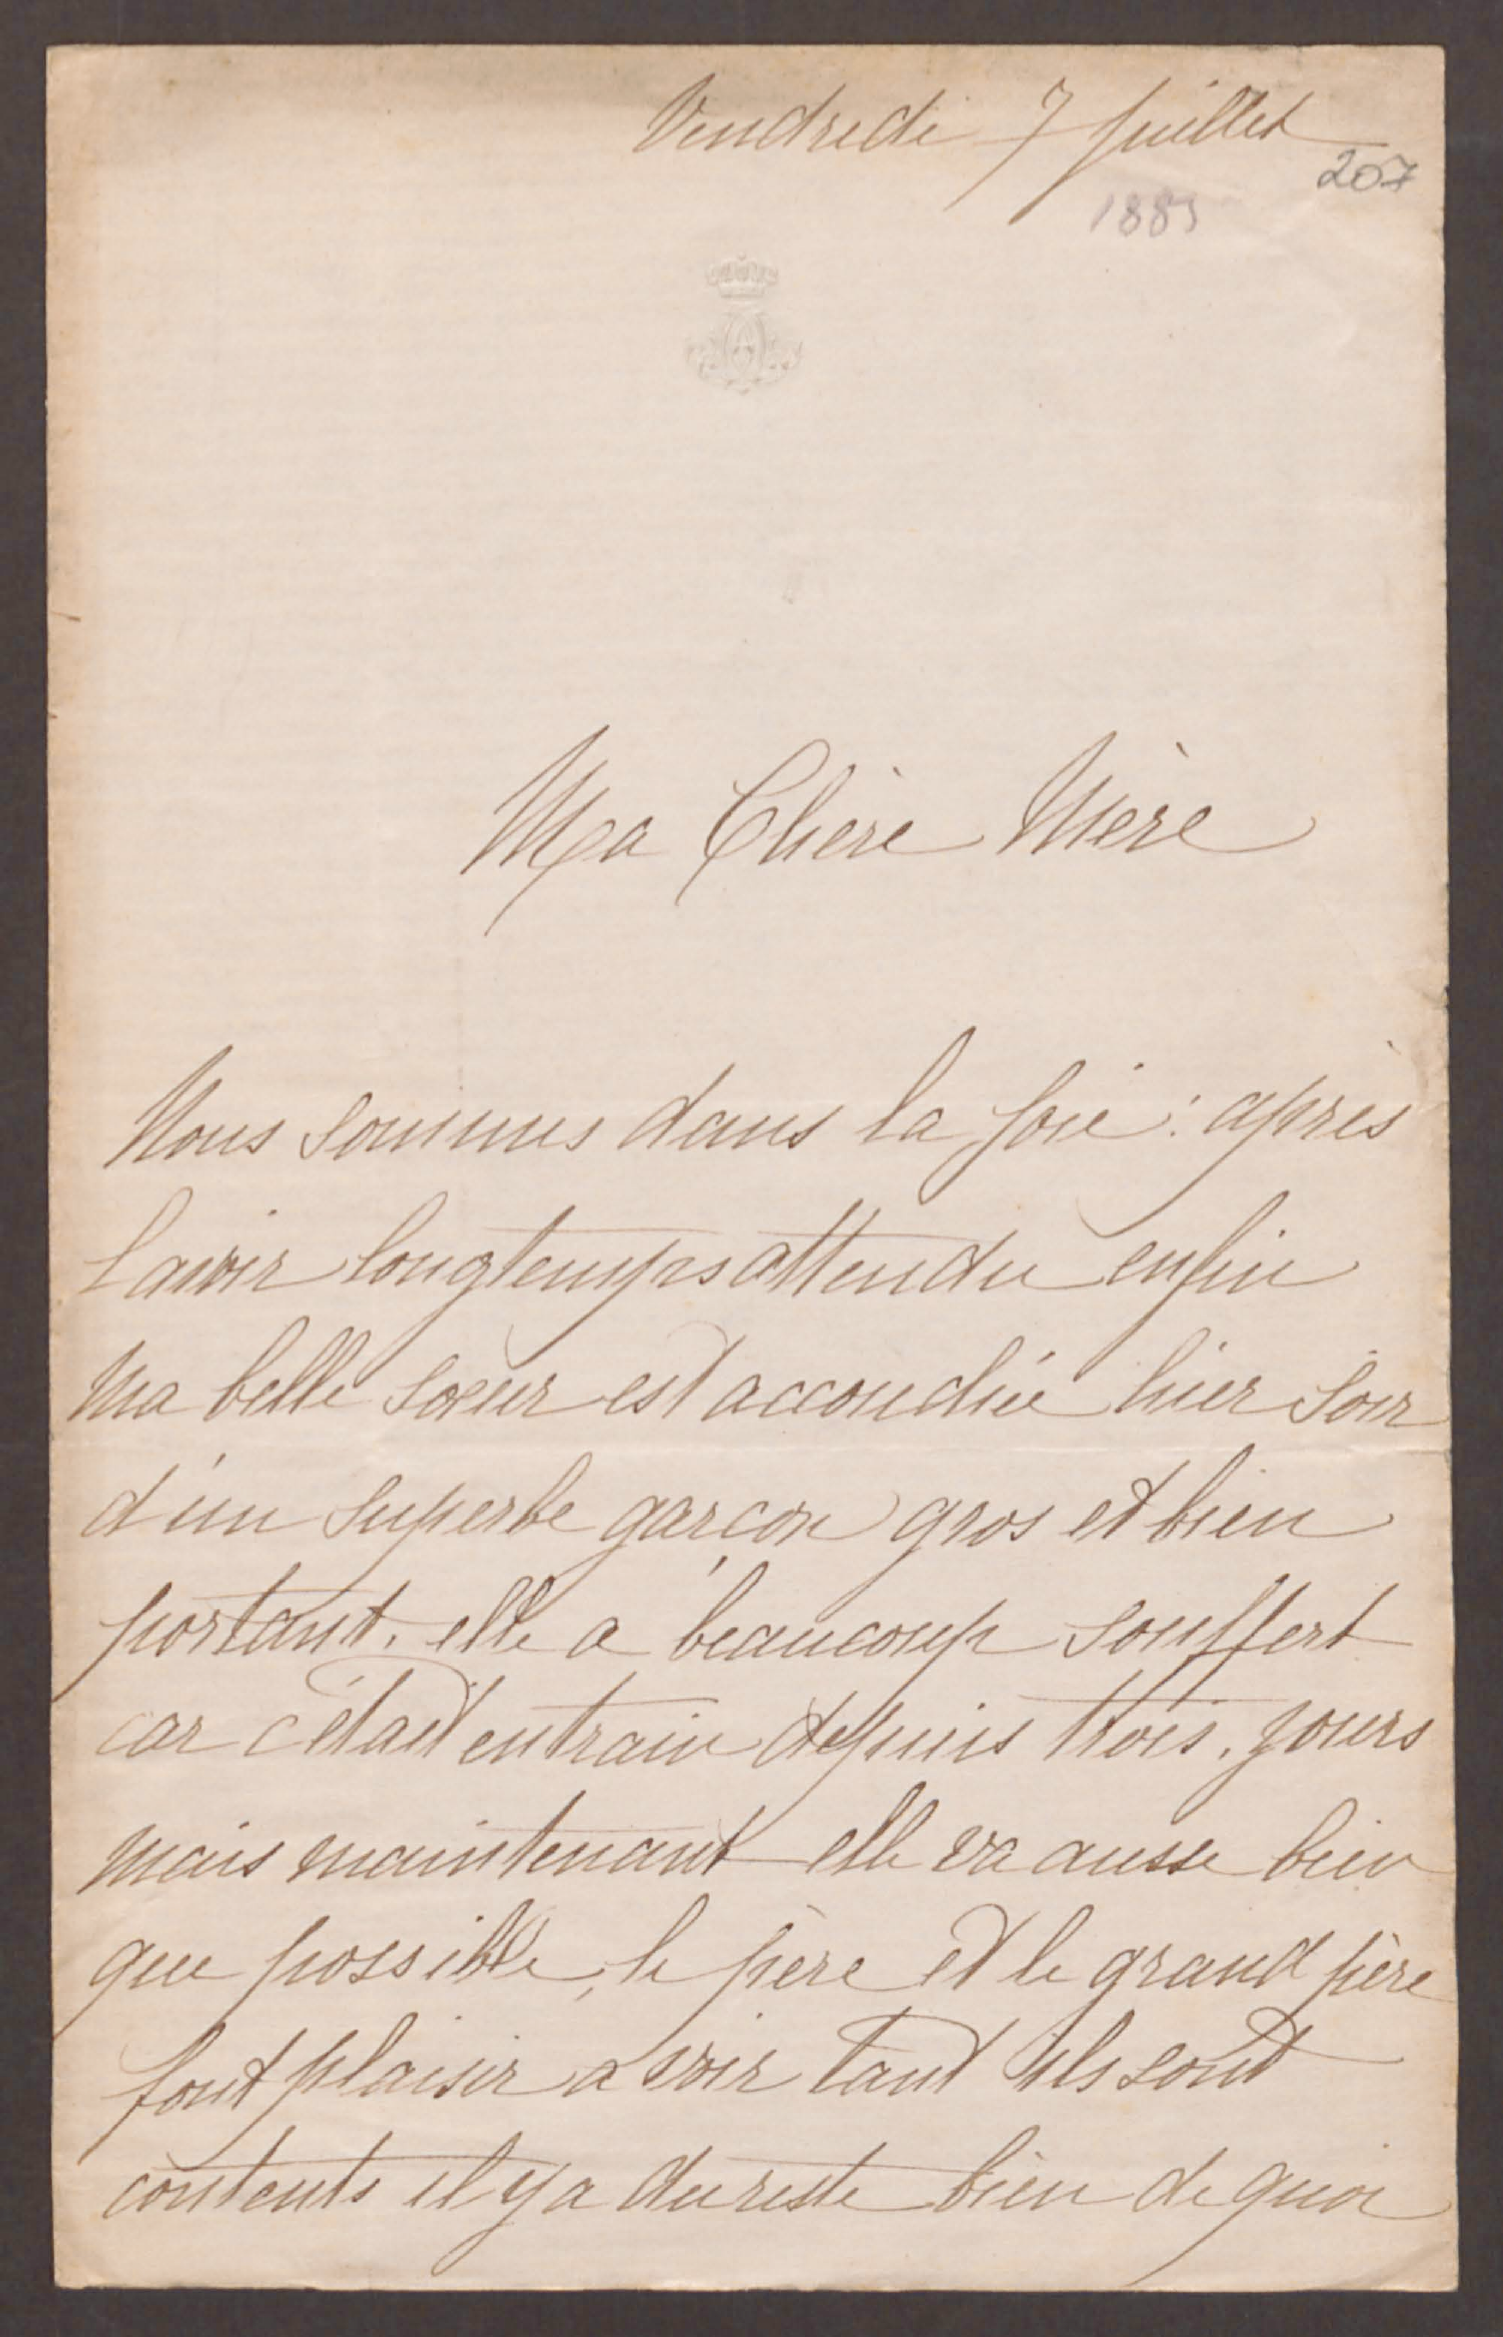 Vendredi 7 Juillet
207
1885
Ma Chère Mère
Nous sommes dans la joie : après
l'avoir longtemps attendu enfin
ma belle sœur est accouchée hier soir
d'un superbe garçon gros et bien
portant. elle a beaucoup souffert
car c'était en train depuis trois. jours
mais maintenant elle va aussi bien
que possible, le père et le grand père
font plaisir a voir tant ils sont
contents il y a du reste bien de quoi